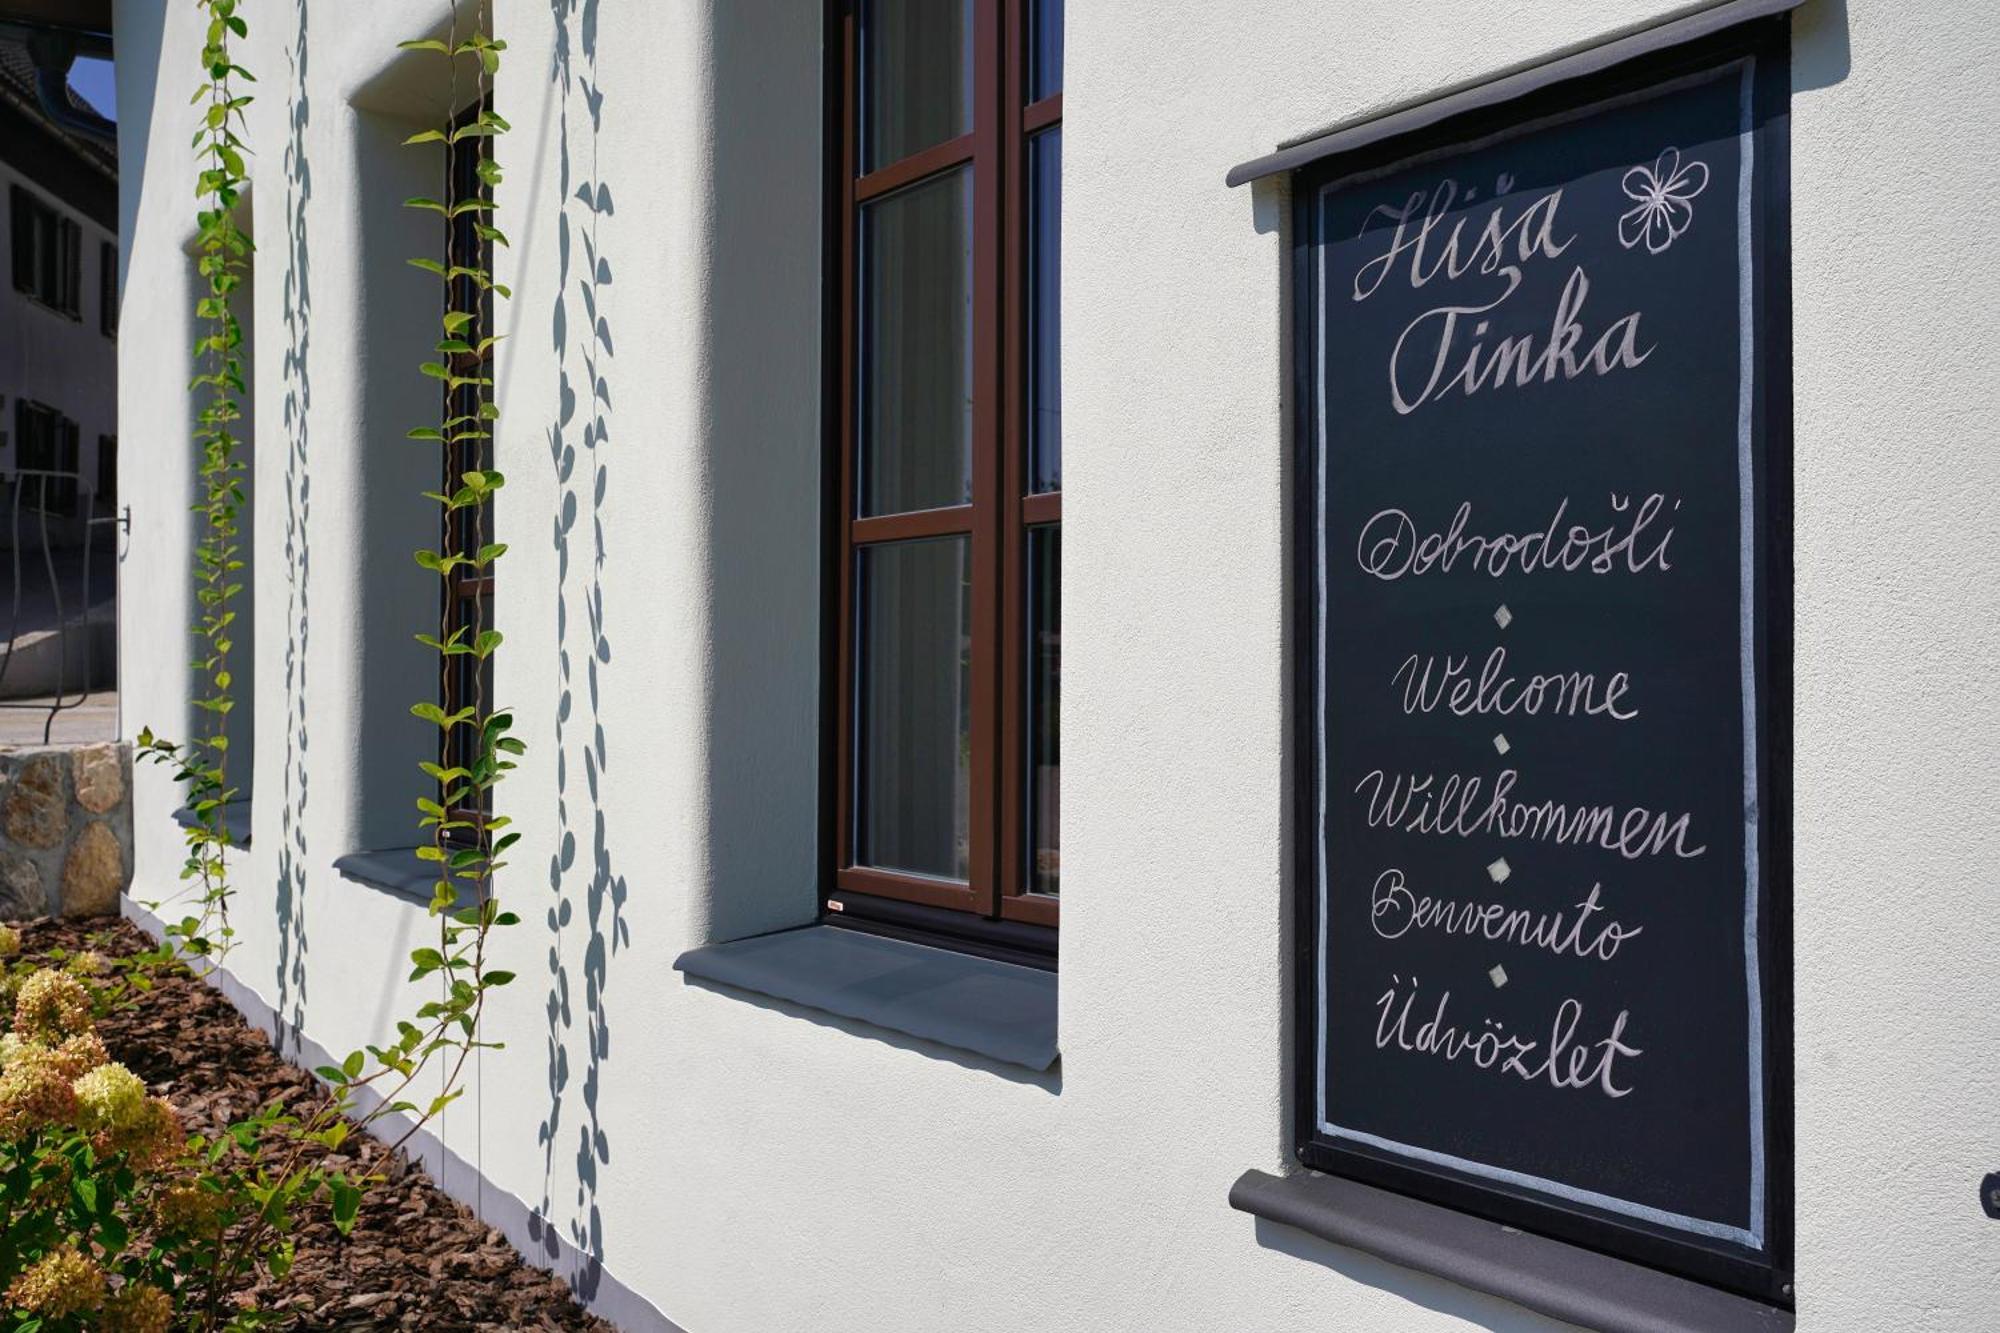 Hiša
Tinka
Dobrodošli
Welcome
Willkommen
Benvenuto
Üdvözlet